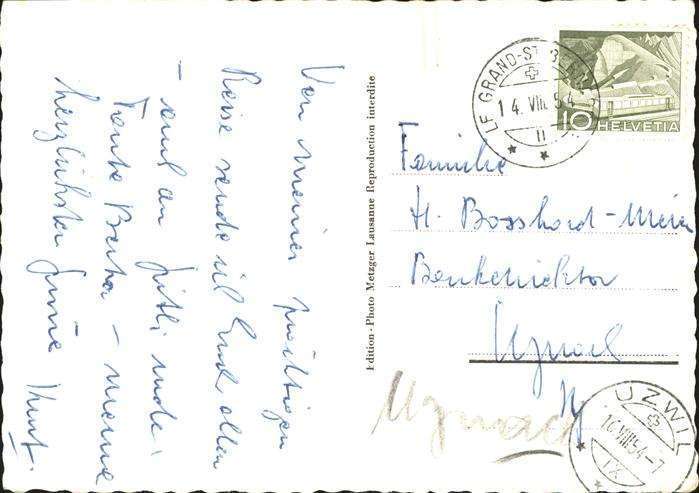 Von meiner prächtigen
Reise sende ich Euch allen
– und an Gritli, u.
Tante Berta – meine
herzlichsten Grüsse
Edition - Photo Metzger Lausanne Reproduction interdite
LE GRAND-ST-BERNARD
14. VIII. 54
10 HELVETIA
Familie
H. Bosshard-Meier
Bankdirektor
Uznach
Uznach
UZWIL
16. VIII. 54 - 7